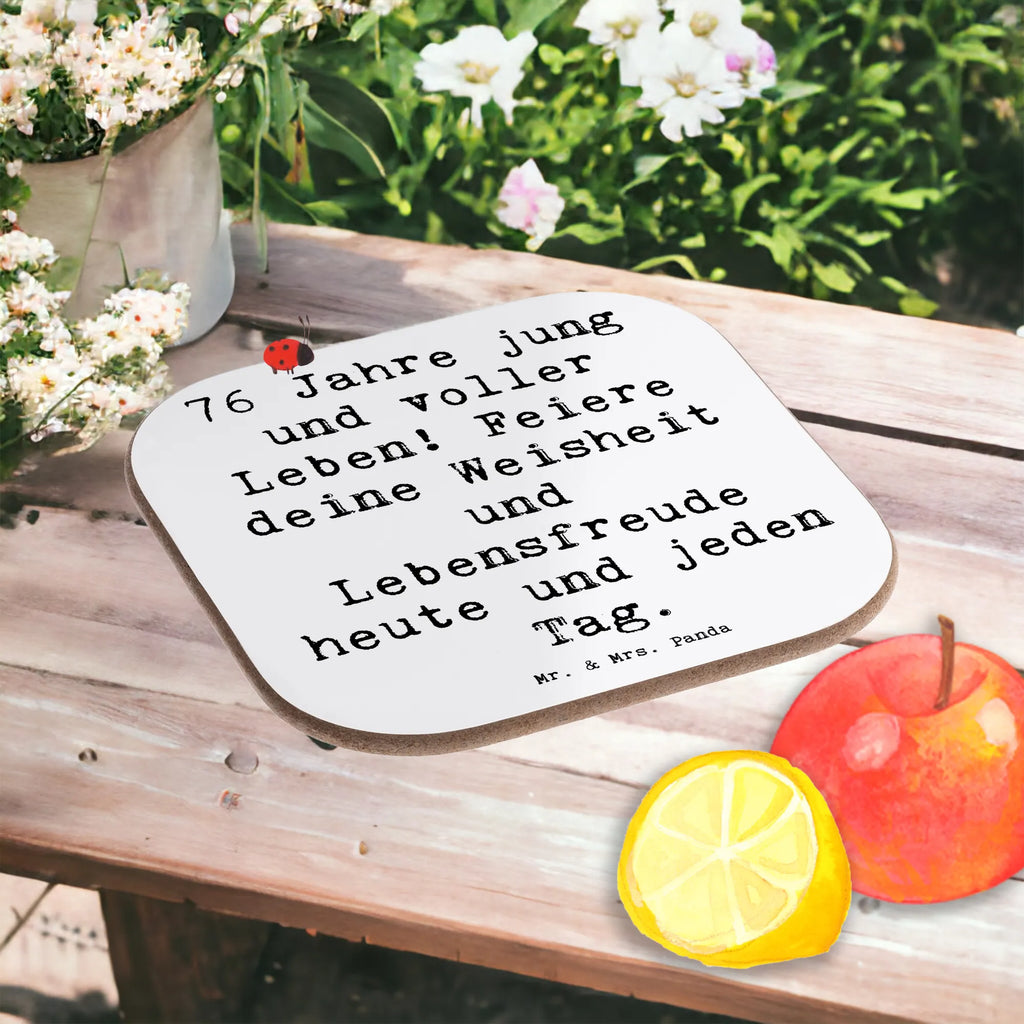 76 Jahre jung
und voller
Leben! Feiere
deine Weisheit
und
Lebensfreude
heute und jeden
Tag.
Mr. & Mrs. Panda